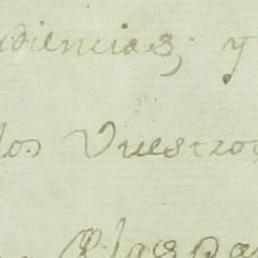 udiencias; y
los Vuestros